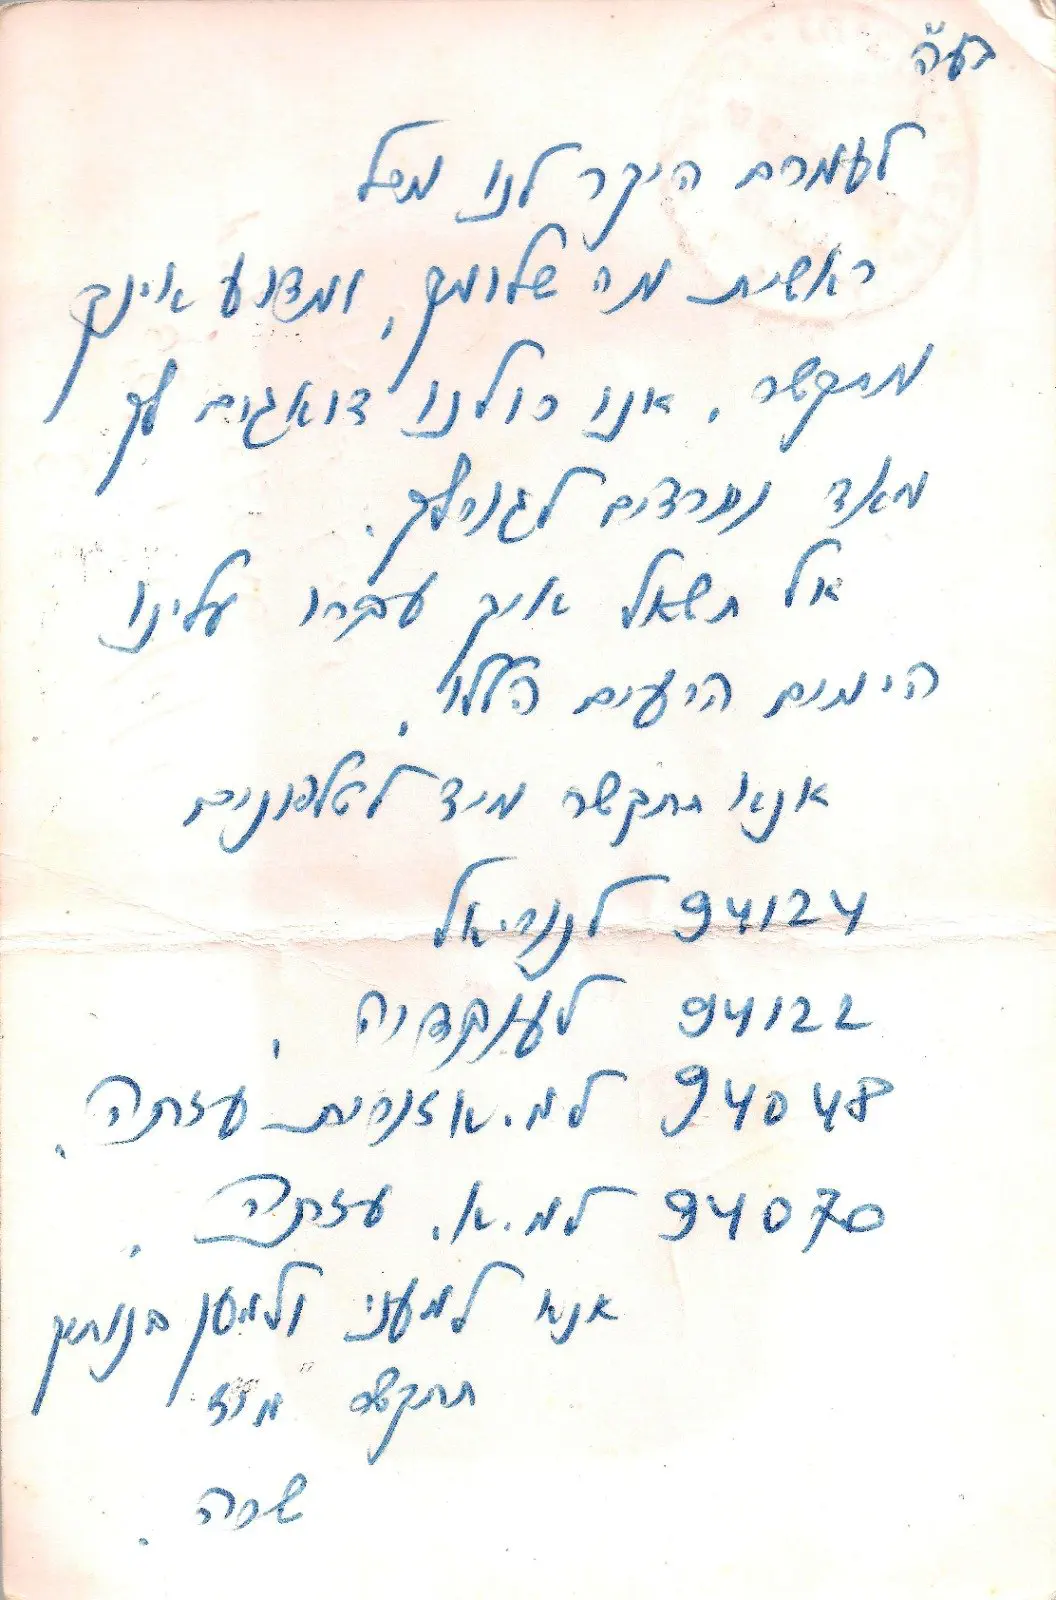 בע"ה
לעמרם היקר לנו מכל
ראשית מה שלומך, ומדוע אינך
מתקשר. אנו כולנו דואגים לך
מאד וחרדים לגורלך.
אל תשאל איך עברו עלינו
הימים הרעים הללו,
אנא התקשר מיד לטלפונים
94124 לנוריאל
94122 לעובדיה,
94048 למ. אזורית עזתה.
94070 למ.א. עזתה,
אנא למעני ולמען בנותיך
תתקשר מיד
שרה.